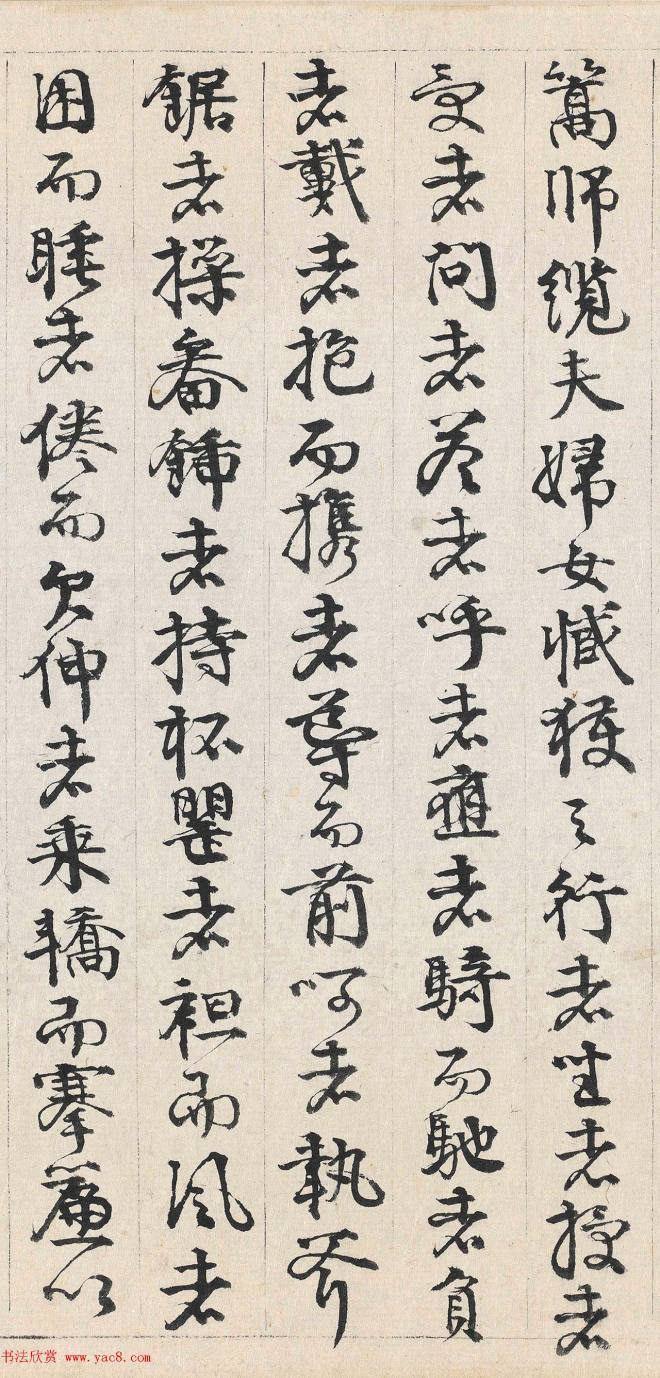 篙師纜夫婦女臧獲之行者坐者授者
受者問者答者呼者應者騎而馳者負
者戴者抱而攜者導而前呵者執斧
鋸者操畚鍤者持杯罌者袒而風者
困而睡者倦而欠伸者乘轎而搴簾以
书法欣赏 www.yac8.com